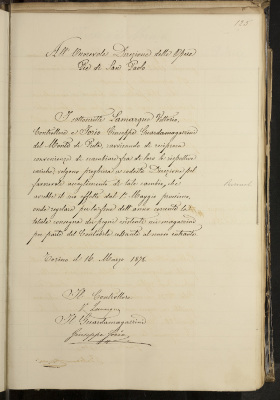 125
All' Onorevole Direzione delle Opere
Pie di San Paolo
I sottoscritti Lamarque Vittorio
Controllore e Soria Giuseppe Guardamagazzini
del Monte di Pietà, ravvisando di reciproca
convenienza di scambiare fra di loro le rispettive
cariche, volgono preghiera a codesta Direzione pel
favorevole accoglimento di tale cambio, che
avrebbe il suo effetto dal 1° Maggio prossimo,
onde regolare per la fine dell'anno corrente la
totale consegna dei pegni esistenti nei magazzini
per parte del
Torino il 16 Marzo 1878
Il Controllore
V. Lamarque
Il Guardamagazzini
Giuseppe Soria